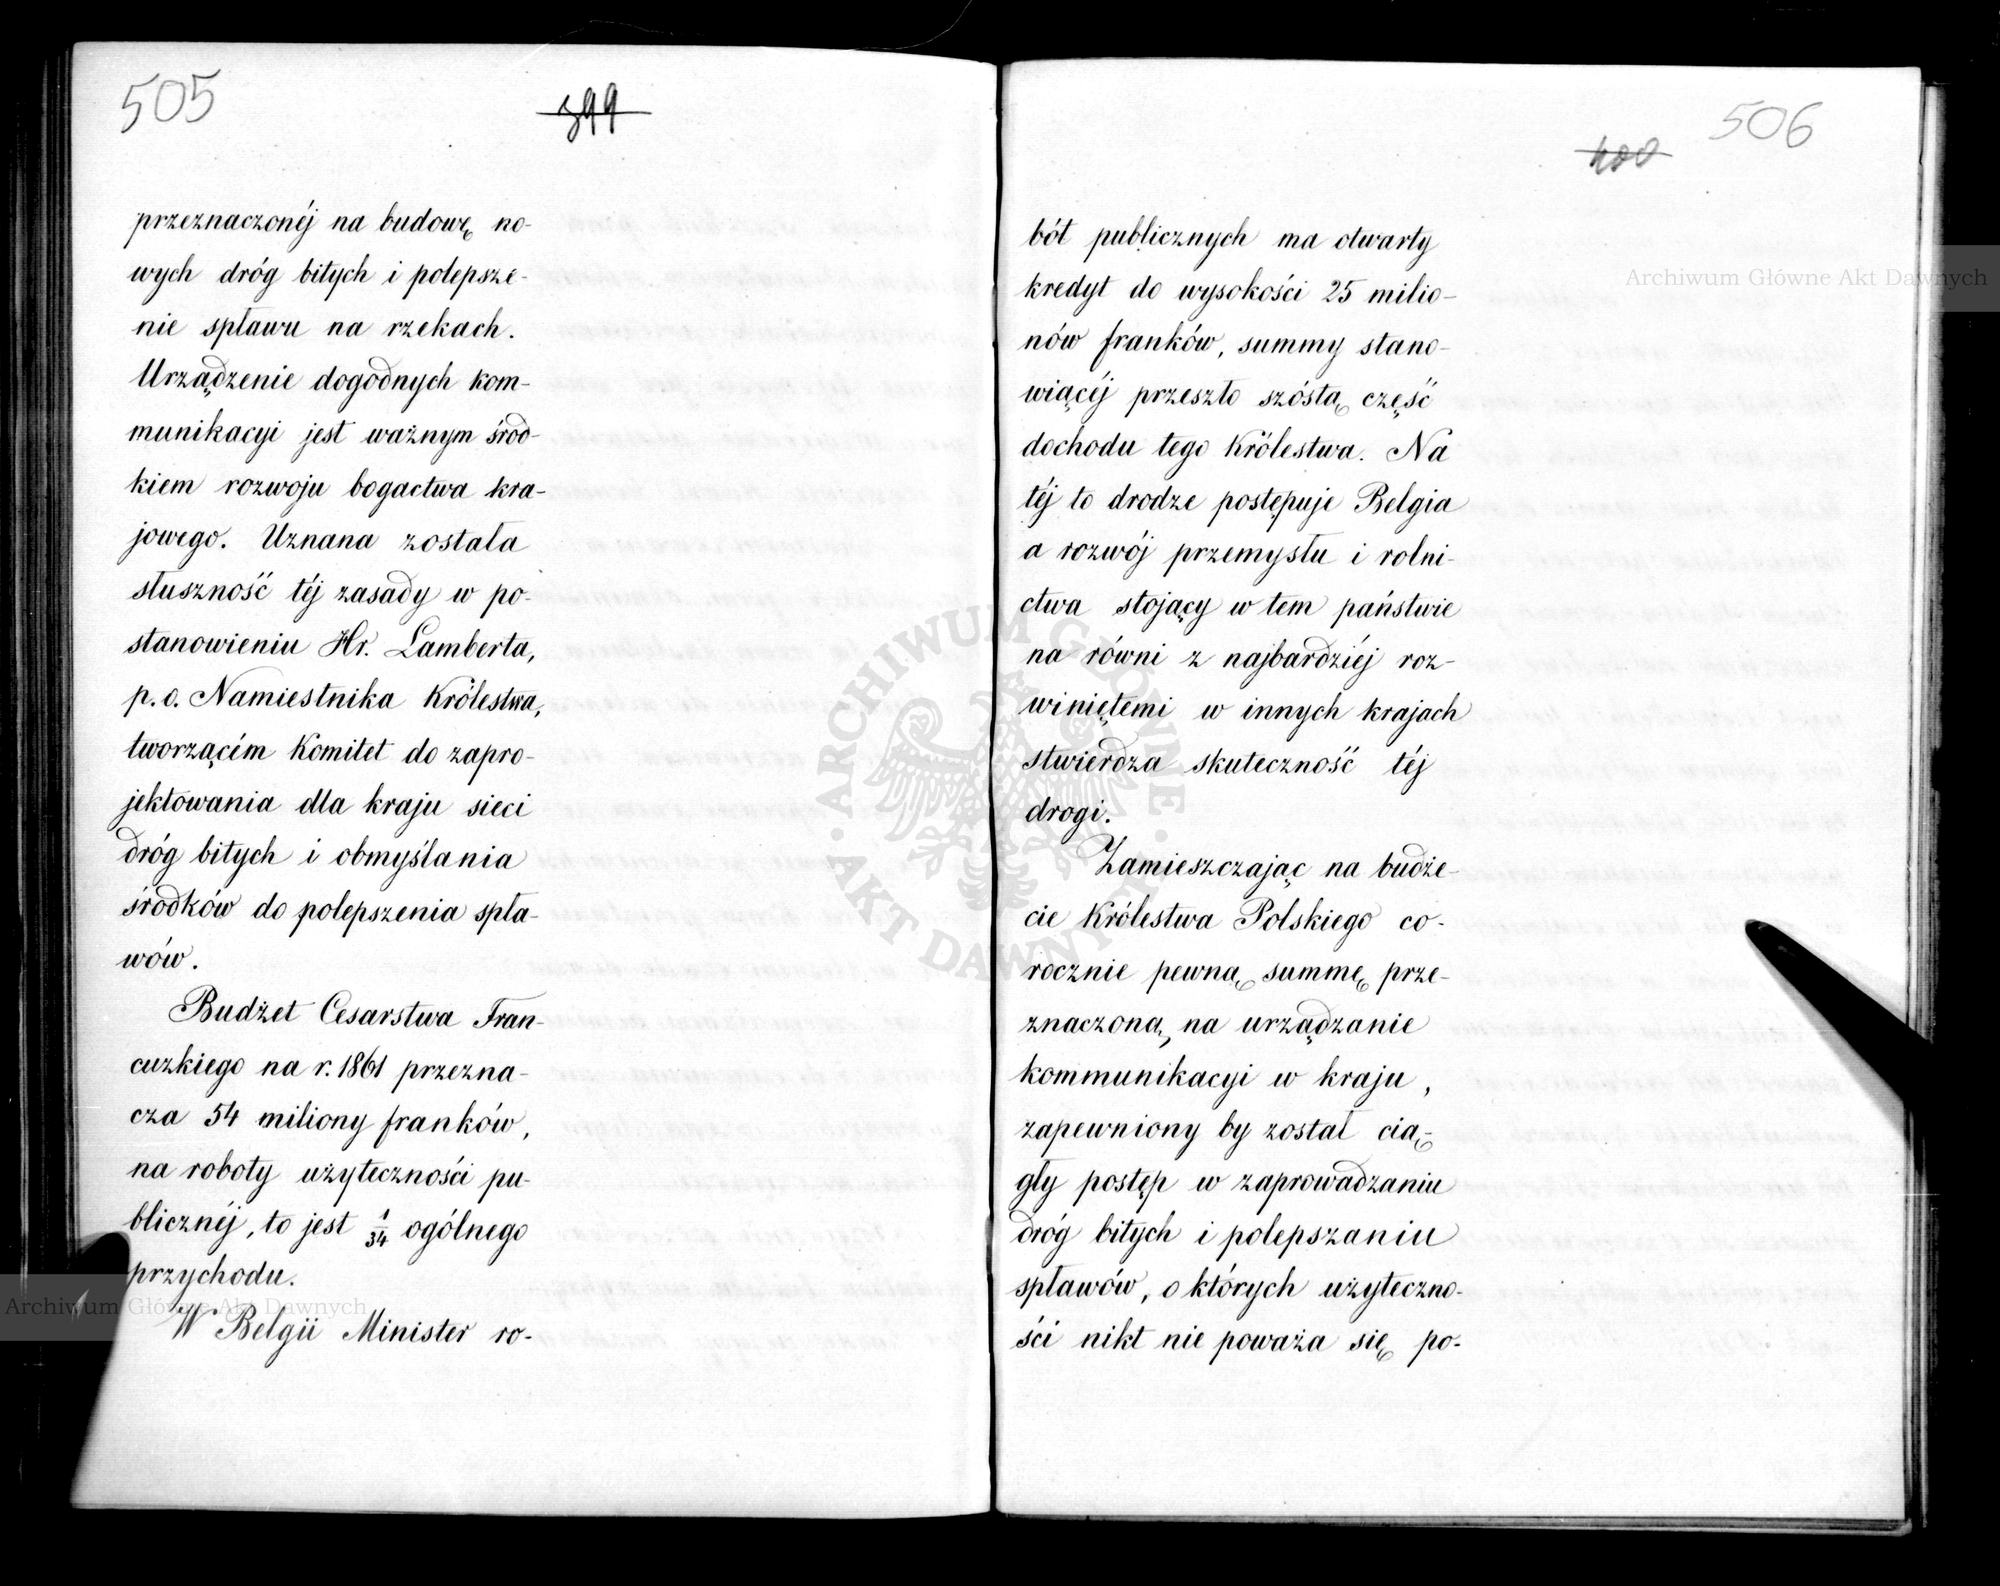 505
399
przeznaczonéj na budowę no-
wych dróg bitych i polepsze-
nie spławu na rzekach.
Urządzenie dogodnych kom-
munikacyi jest ważnym środ-
kiem rozwoju bogactwa kra-
jowego. Uznana została
słuszność téj zasady w po-
stanowieniu Hr. Lamberta,
p.o. Namiestnika Królestwa,
tworzącém Komitet do zapro-
jektowania dla kraju sieci
dróg bitych i obmyślania
środków do polepszenia spła-
wów.
Budżet Cesarstwa Fran-
cuzkiego na r. 1861 przezna-
cza 54 miliony franków,
na roboty użyteczności pu-
blicznéj, to jest 1/34 ogólnego
przychodu.
W Belgii Minister ro-
506
400
bót publicznych ma otwarty
kredyt do wysokości 25 milio-
nów franków, summy stano-
wiącéj przeszło szóstą część
dochodu tego Królestwa. Na
téj to drodze postępuje Belgia
a rozwój przemysłu i rolni-
ctwa stojący w tem państwie
na równi z najbardziéj roz-
winiętemi w innych krajach
stwierdza skuteczność téj
drogi.
Zamieszczając na budże-
cie Królestwa Polskiego co-
rocznie pewną summę prze-
znaczoną na urządzanie
kommunikacyi w kraju,
zapewniony by został cią-
gły postęp w zaprowadzaniu
dróg bitych i polepszaniu
spławów, o których użyteczno-
ści nikt nie poważa się po-
Archiwum Główne Akt Dawnych
Archiwum Główne Akt Dawnych
ARCHIWUM GŁÓWNE AKT DAWNYCH